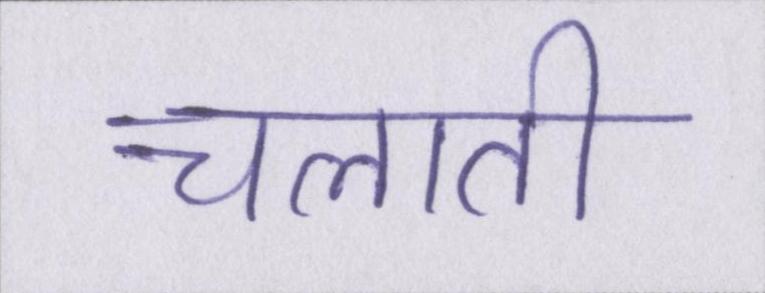 चलाती